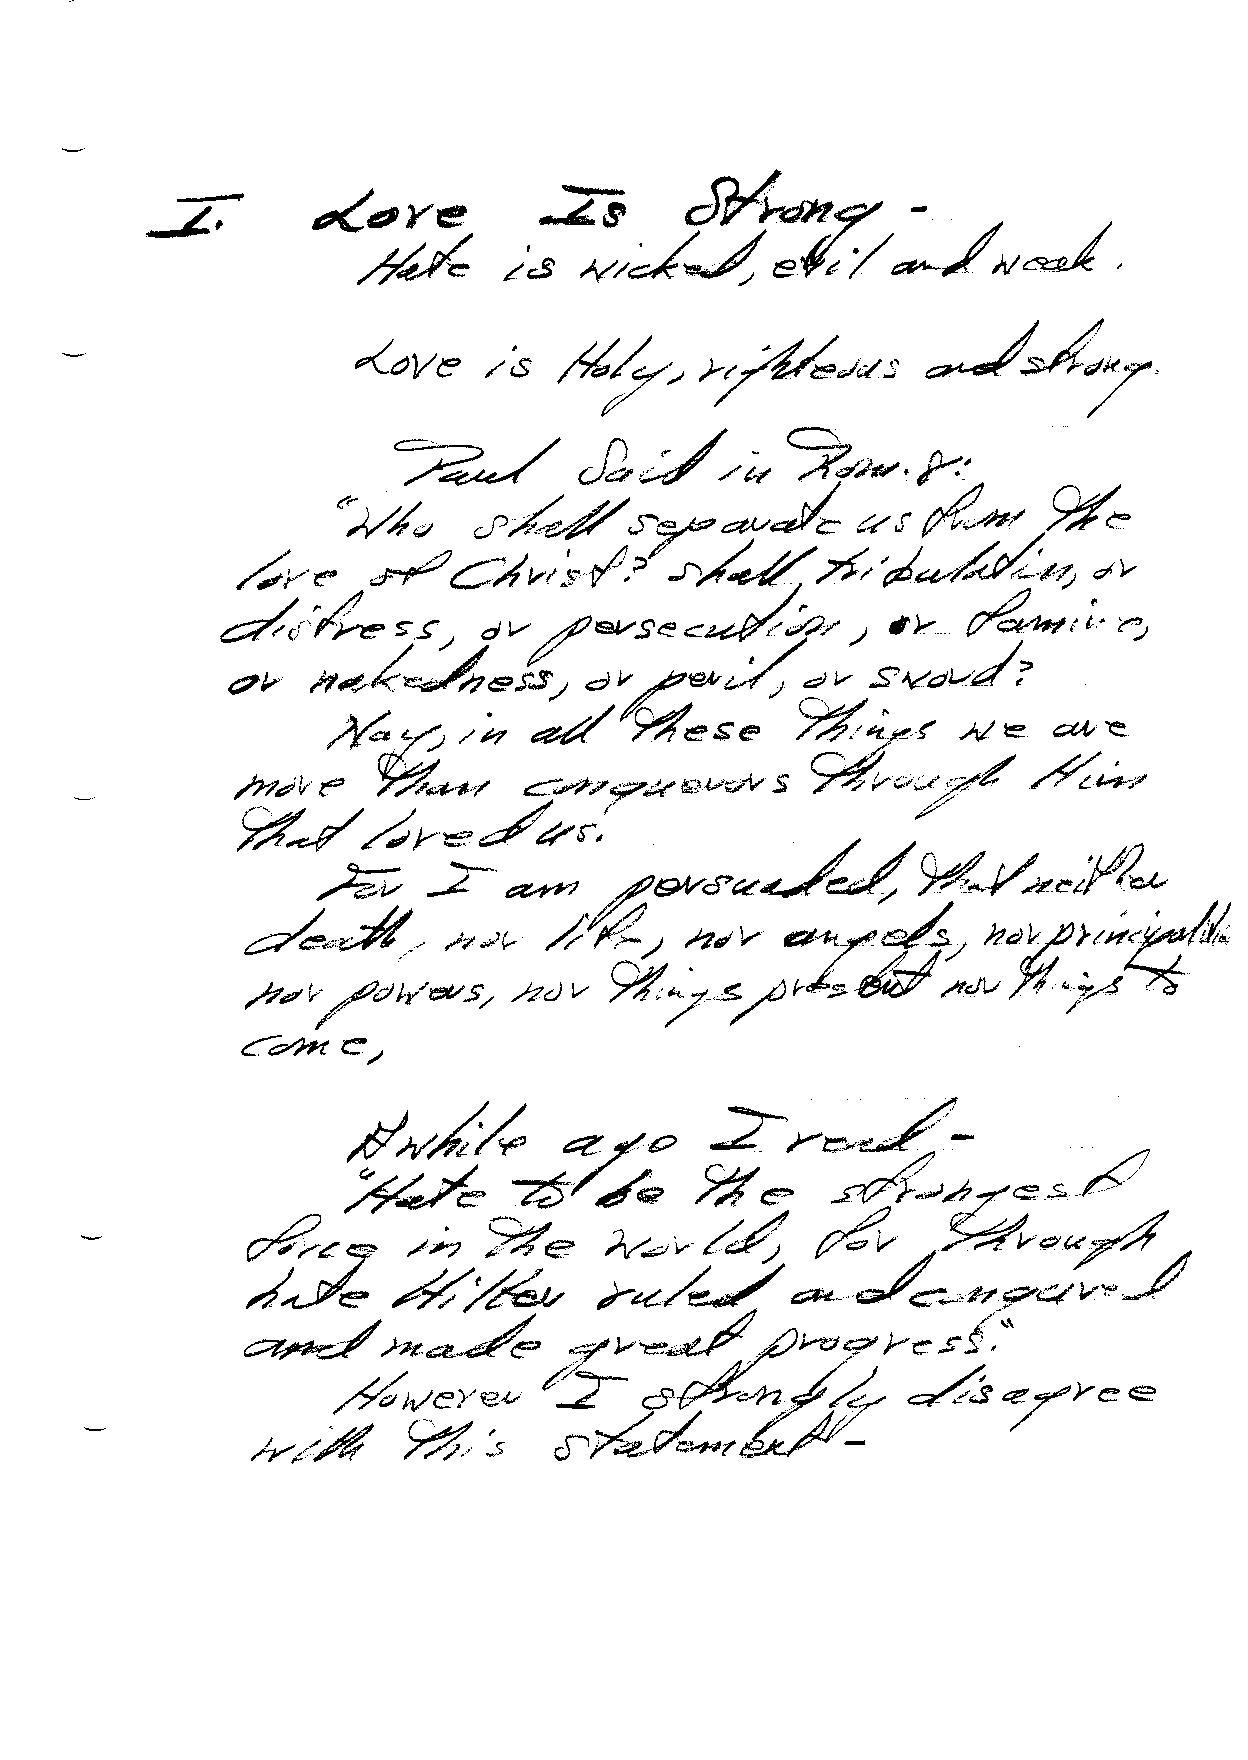 I. Love Is Strong -
Hate is wicked, evil and weak.
Love is Holy, righteous and strong.
Paul Said in Rom. 8:
"Who shall separate us from the
love of Christ? shall tribulation, or
distress, or persecution, or famine,
or nakedness, or peril, or sword?
Nay, in all these things we are
more than conquerors through Him
that loved us.
For I am persuaded, that neither
death, nor life, nor angels, nor principalities
nor powers, nor things present nor things to
come,
Awhile ago I read -
"Hate to be the strongest
force in the world, for through
hate Hitler ruled and conquered
and made great progress."
However I strongly disagree
with this statement -